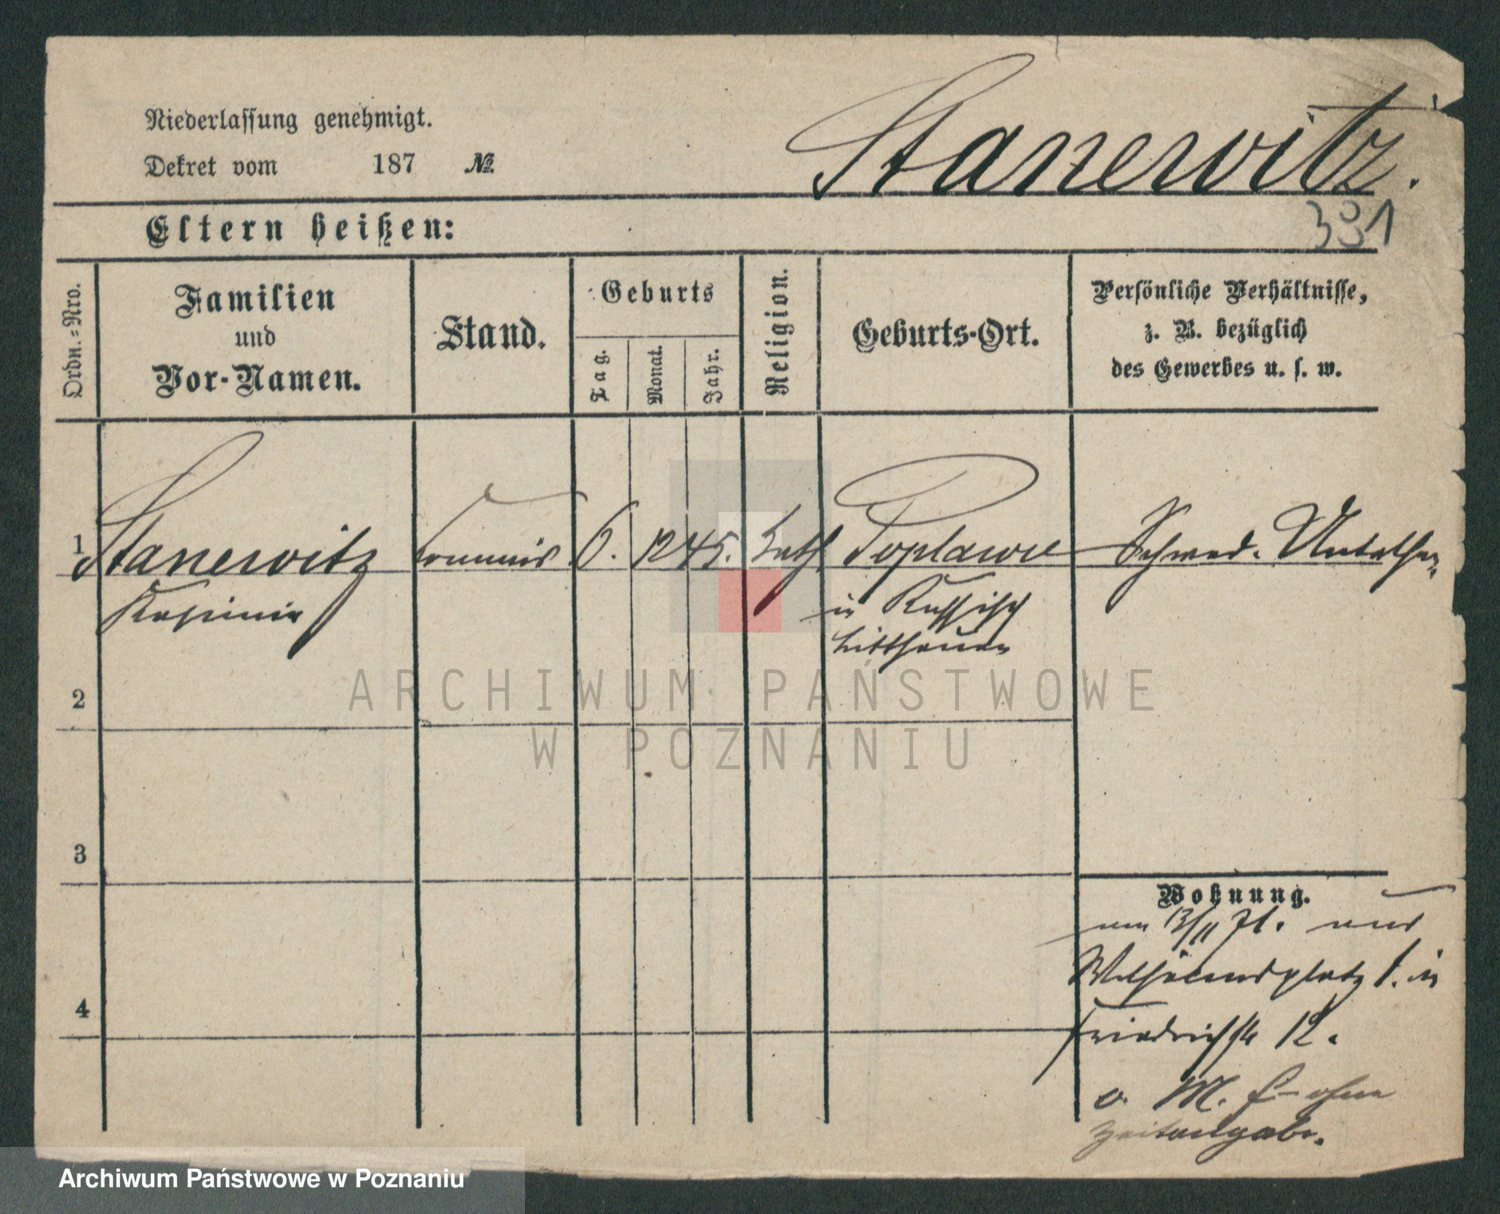 Niederlassung genehmigt.
Dekret vom 187 №
Stanewitz.
391
Eltern heißen:
Ordn.-Nro.
Familien
und
Vor-Namen.
Stand.
Geburts
Tag.
Monat.
Jahr.
Religion.
Geburts-Ort.
Persönliche Verhältnisse,
z. B. bezüglich
des Gewerbes u. s. w.
1 Stanewitz Commis 6. 12 45. kath Poplawe Schwed. Unterthan
Kasimir in Russisch
Litthauen
2
3
4
Wohnung.
am 13/11 71. aus
Wilhelmsplatz 1. in
Friedrichstr 12.
o. M. ohne
Zeitangabe.
ARCHIWUM PAŃSTWOWE
W POZNANIU
Archiwum Państwowe w Poznaniu